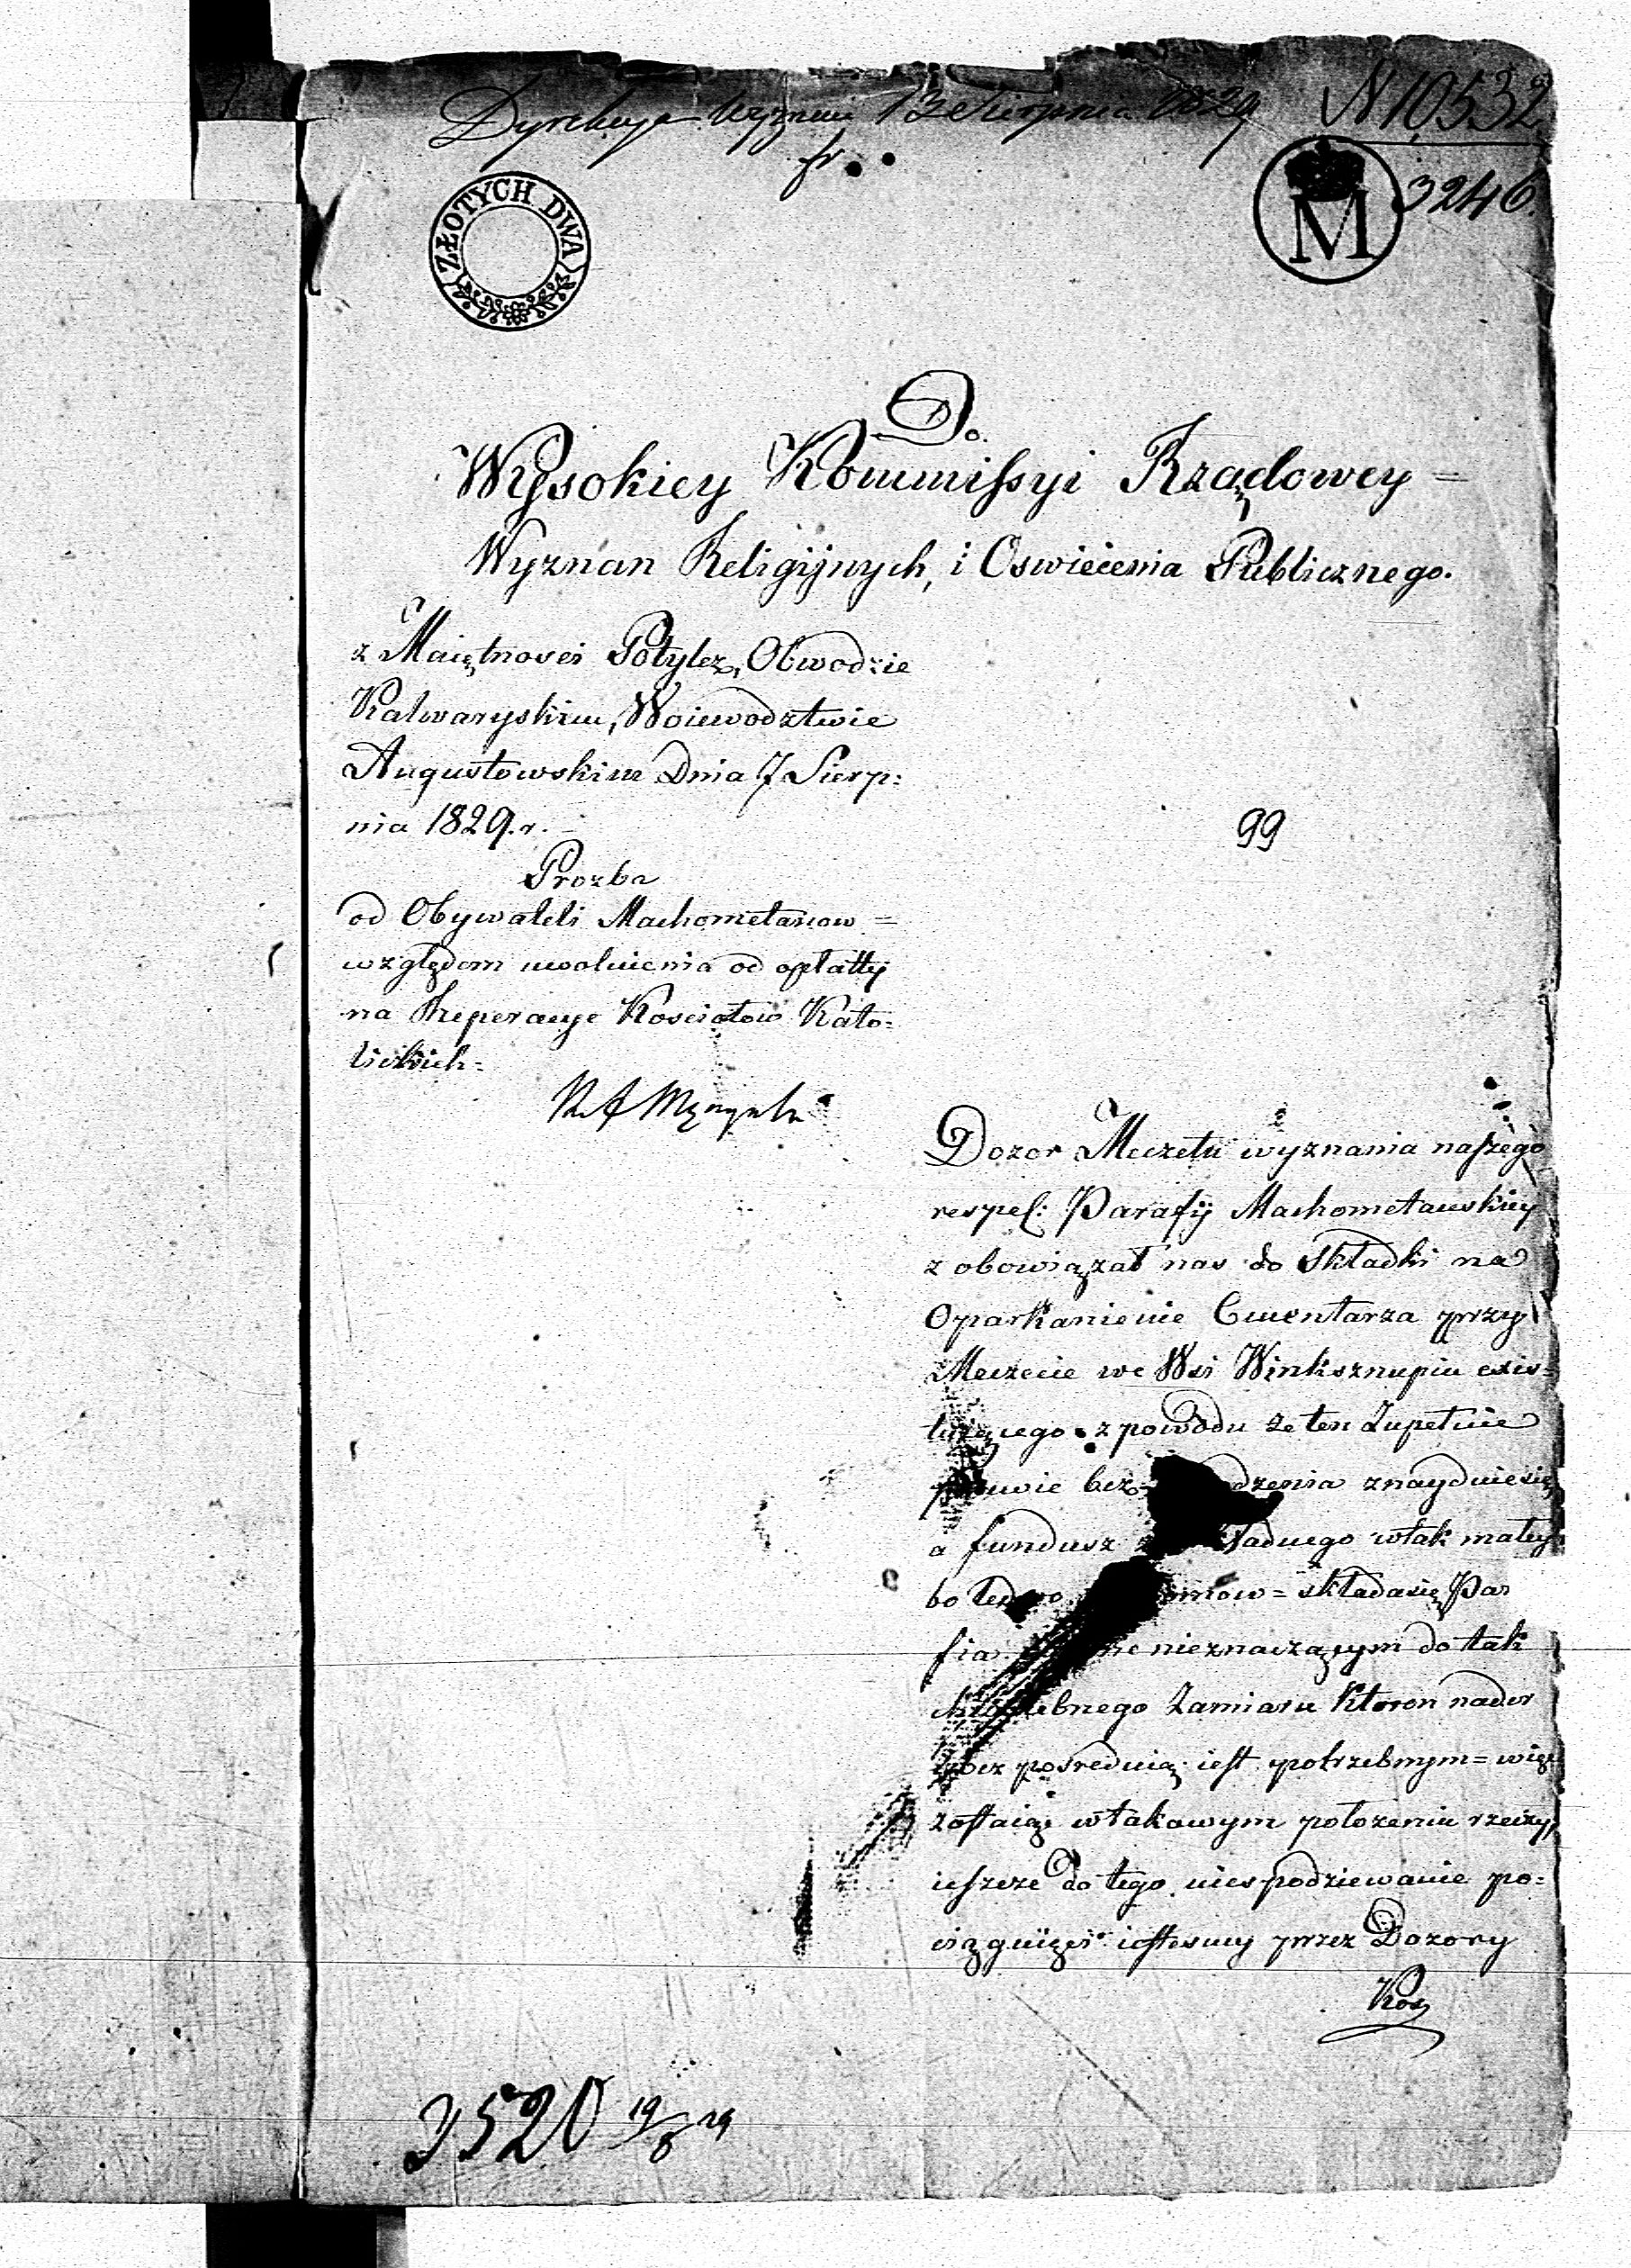 Dyrekcya Wyznań 13 Sierpnia 1829
N 10,532
3246.
ZŁOTYCH DWA
M
Do.
Wysokiey Kommissyi Rządowey =
Wyznan Religijnych, i Oswiecenia Publicznego.
z Maiętnosci Potylcz, Obwodzie
Kalwaryskim, Woiewodztwie
Augustowskim Dnia 7 Sierp:
nia 1829. r.
99
Prozba
od Obywateli Machometanow =
względem uwolnienia od opłatty
na Reperacye Kosciołow Kato=
lickich=
Dozor Meczetu wyznania naszego
respec: Parafij Machometanskiey
z obowiązał nas do Składki na
Oparkanienie Cmentarza przy
Meczecie we Wsi Winksznupiu exis=
tuiącego z powodu że ten Zupełnie
prawie bez dzenia znayduie się
a fundusz żadnego wtak małey
bo ledwo domow = składa się Par
fia nieznaczącym do tak
chwalebnego Zamiaru Ktoren nader
bez posrednią iest potrzebnym = więc
zostaiąc wtakowym położeniu rzeczy,
ieszcze do tego niespodziewanie po=
ciągnięci iestesmy przez Dozory
Kos
3520 19/8 29